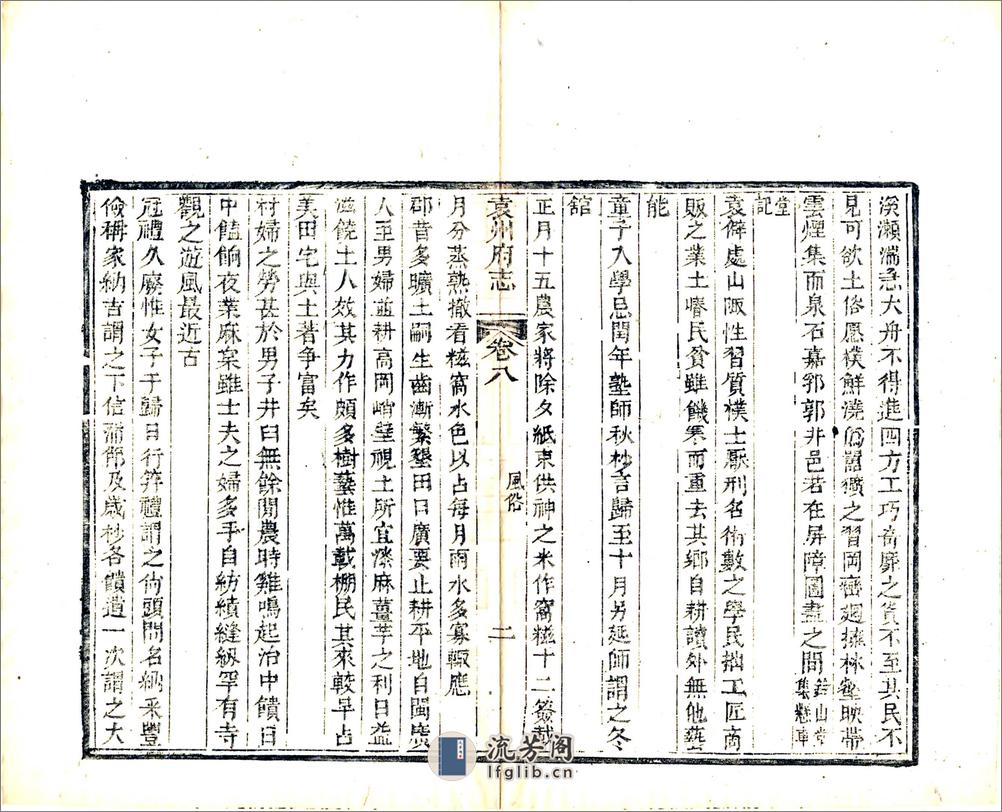 溪瀬湍急大舟不得進四方工巧奇靡之貨不至其民不
見可欲土俗愿樸鮮澆囂獷之習岡巒迴擁林壑映帶
雲煙集而泉石嘉郛郭井邑若在屏障圖畫之間鈐山堂集懸車
堂記
袁僻處山陬性習質樸士厭刑名術數之學民拙工匠商
販之業土瘠民貧雖饑寒而重去其鄉自耕讀外無他藝
能
童子入學忌閏年塾師秋杪言歸至十月另延師謂之冬
舘
正月十五農家將除夕紙束供神之米作窩糍十二簽越
袁州府志
卷八
風俗
二
月分蒸熟撤看糍窩水色以占每月雨水多寡輙應
郡昔多曠土嗣生齒漸繁墾田日廣要止耕平地自閩廣
人至男婦並耕高岡峭壁視土所宜漆麻薑芋之利日益
滋饒土人效其力作頗多樹藝惟萬載棚民其來較早占
美田宅與土著爭富矣
村婦之勞甚於男子井臼無餘閒農時雞鳴起治中饋日
中饁餉夜業麻枲雖士夫之婦多手自紡績縫紉罕有寺
觀之遊風最近古
冠禮久廢惟女子于歸日行筓禮謂之尙頭問名納采豐
儉稱家納吉謂之下信蒲節及歲杪各饋遺一次謂之大
流芳阁
lfglib.cn